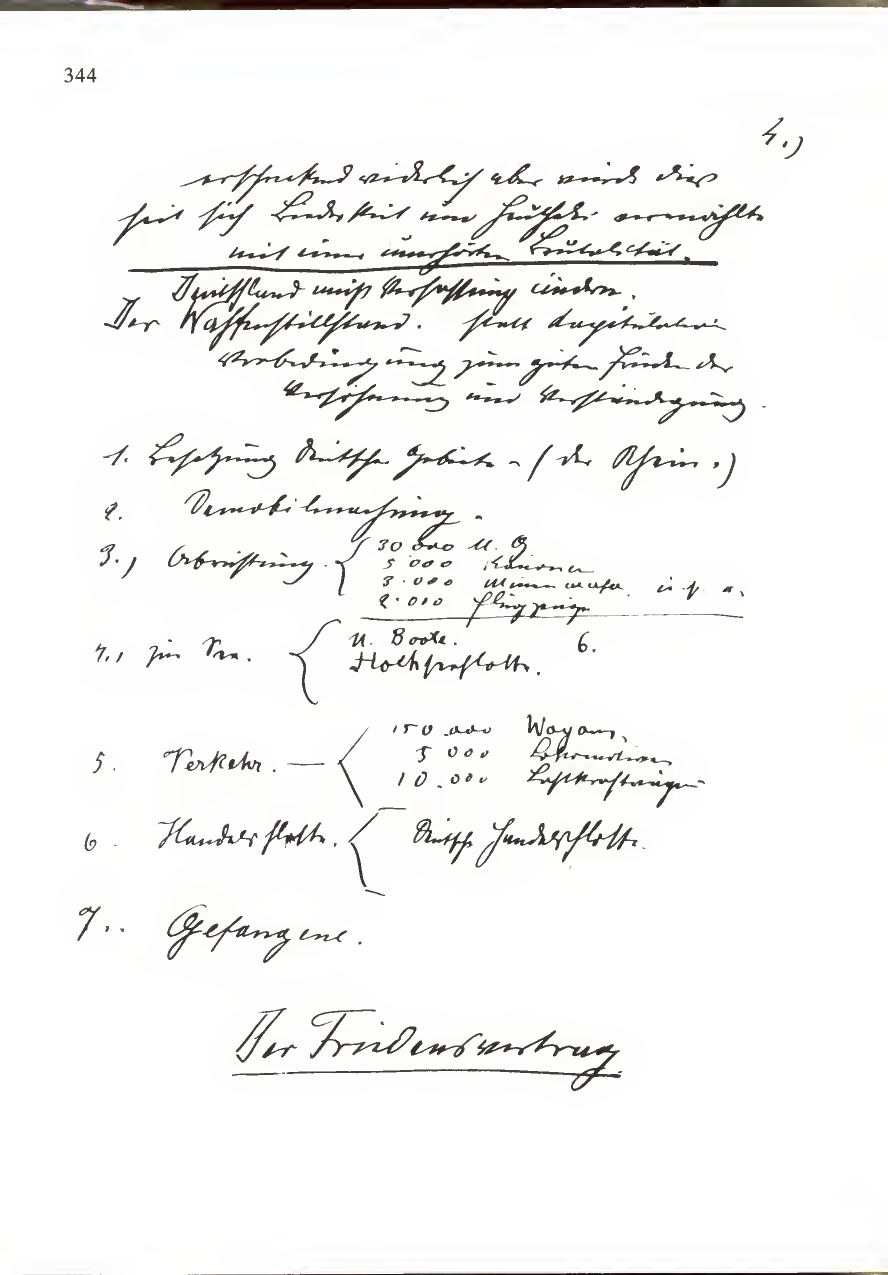 344
4.)
erschreckend widerlich aber wurde dies
seit sich Biederkeit und verwählte
mit einer unerhörten Brutalität.
Deutschland muß Verfassung ändern.
Der Waffenstillstand. statt Kapitulation
Vorbedingung zum guten Frieden der
Versöhnung und Verständigung.
1. Besetzung deutscher Gebiete - (der Rhein.)
2. Demobilmachung.
3.) Abrüstung. { 30.000 M. G
5.000 Kanonen
3.000 Minenwerfer u.s.f. a.
2.000 Flugzeuge
4., zur See. { U. Boote. 6.
Hochseeflotte.
5. Verkehr. — 150.000 Wagons,
5 000 Lokomotiven
10.000 Lastkraftwägen
6. Handelsflotte. { deutsche Handelsflotte.
7.. Gefangene.
Der Friedensvertrag